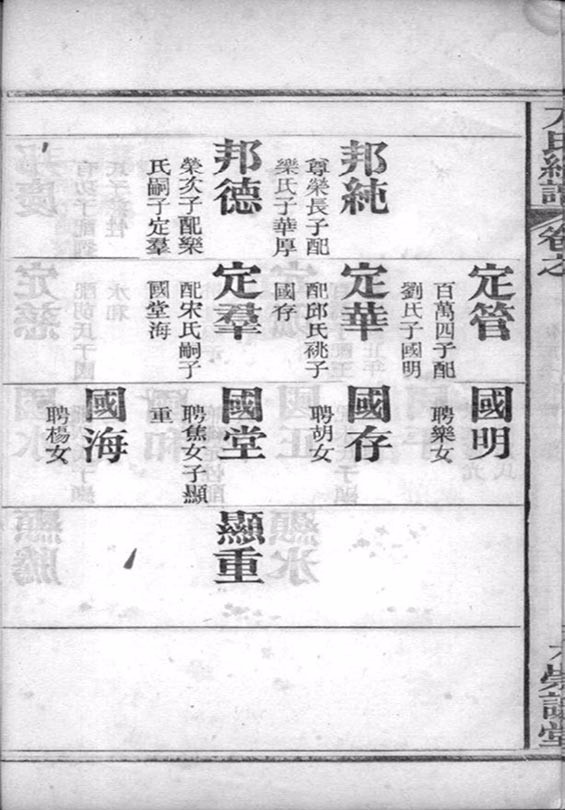 邦純
尊榮長子配
樂氏子華厚
邦德
榮次子配樂
氏嗣子定羣
定管
百萬四子配
劉氏子國明
定華
配邱氏祧子
國存
定羣
配宋氏嗣子
國堂海
國明
聘樂女
國存
聘胡女
國堂
聘焦女子顯
重
國海
聘楊女
顯重
氏
譜
卷之
堂